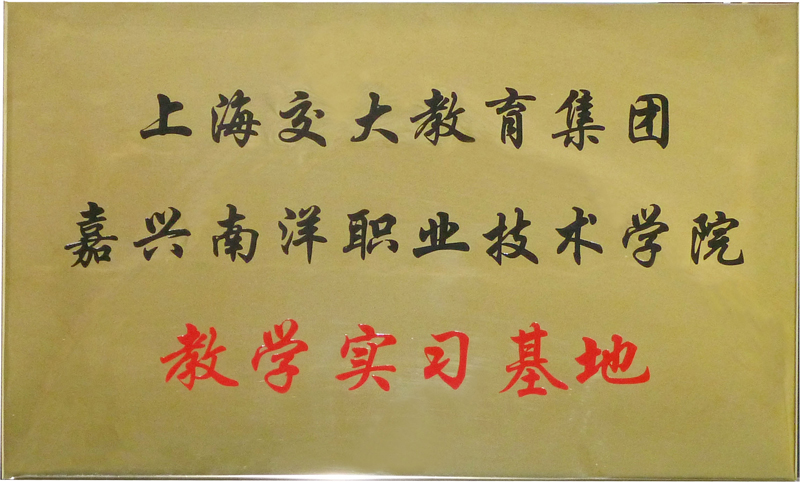 上海交大教育集团
嘉兴南洋职业技术学院
教学实习基地